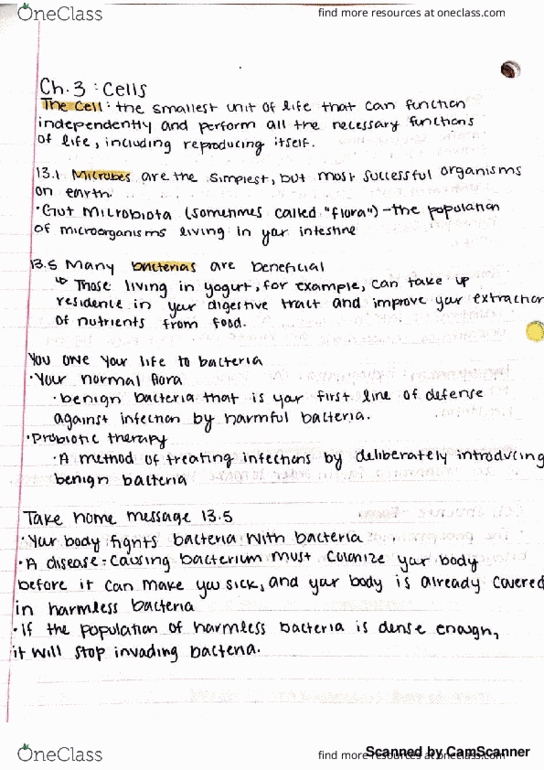 OneClass
find more resources at oneclass.com
Ch. 3 : Cells
The Cell : the smallest unit of life that can function
independently and perform all the necessary functions
of life, including reproducing itself.
13.1 Microbes are the simplest, but most successful organisms
on earth
• Gut Microbiota (sometimes called "flora") - the population
of microorganisms living in your intestine
13.5 Many bacterias are beneficial
↳ Those living in yogurt, for example, can take up
residence in your digestive tract and improve your extraction
of nutrients from food.
You owe your life to bacteria
• Your normal flora
• benign bacteria that is your first line of defense
against infection by harmful bacteria.
• Probiotic therapy
• A method of treating infections by deliberately introducing
benign bacteria
Take home message 13.5
• Your body fights bacteria with bacteria
• A disease-causing bacterium must colonize your body
before it can make you sick, and your body is already covered
in harmless bacteria
• If the population of harmless bacteria is dense enough,
it will stop invading bacteria.
OneClass
find more resources at oneclass.com
Scanned by CamScanner